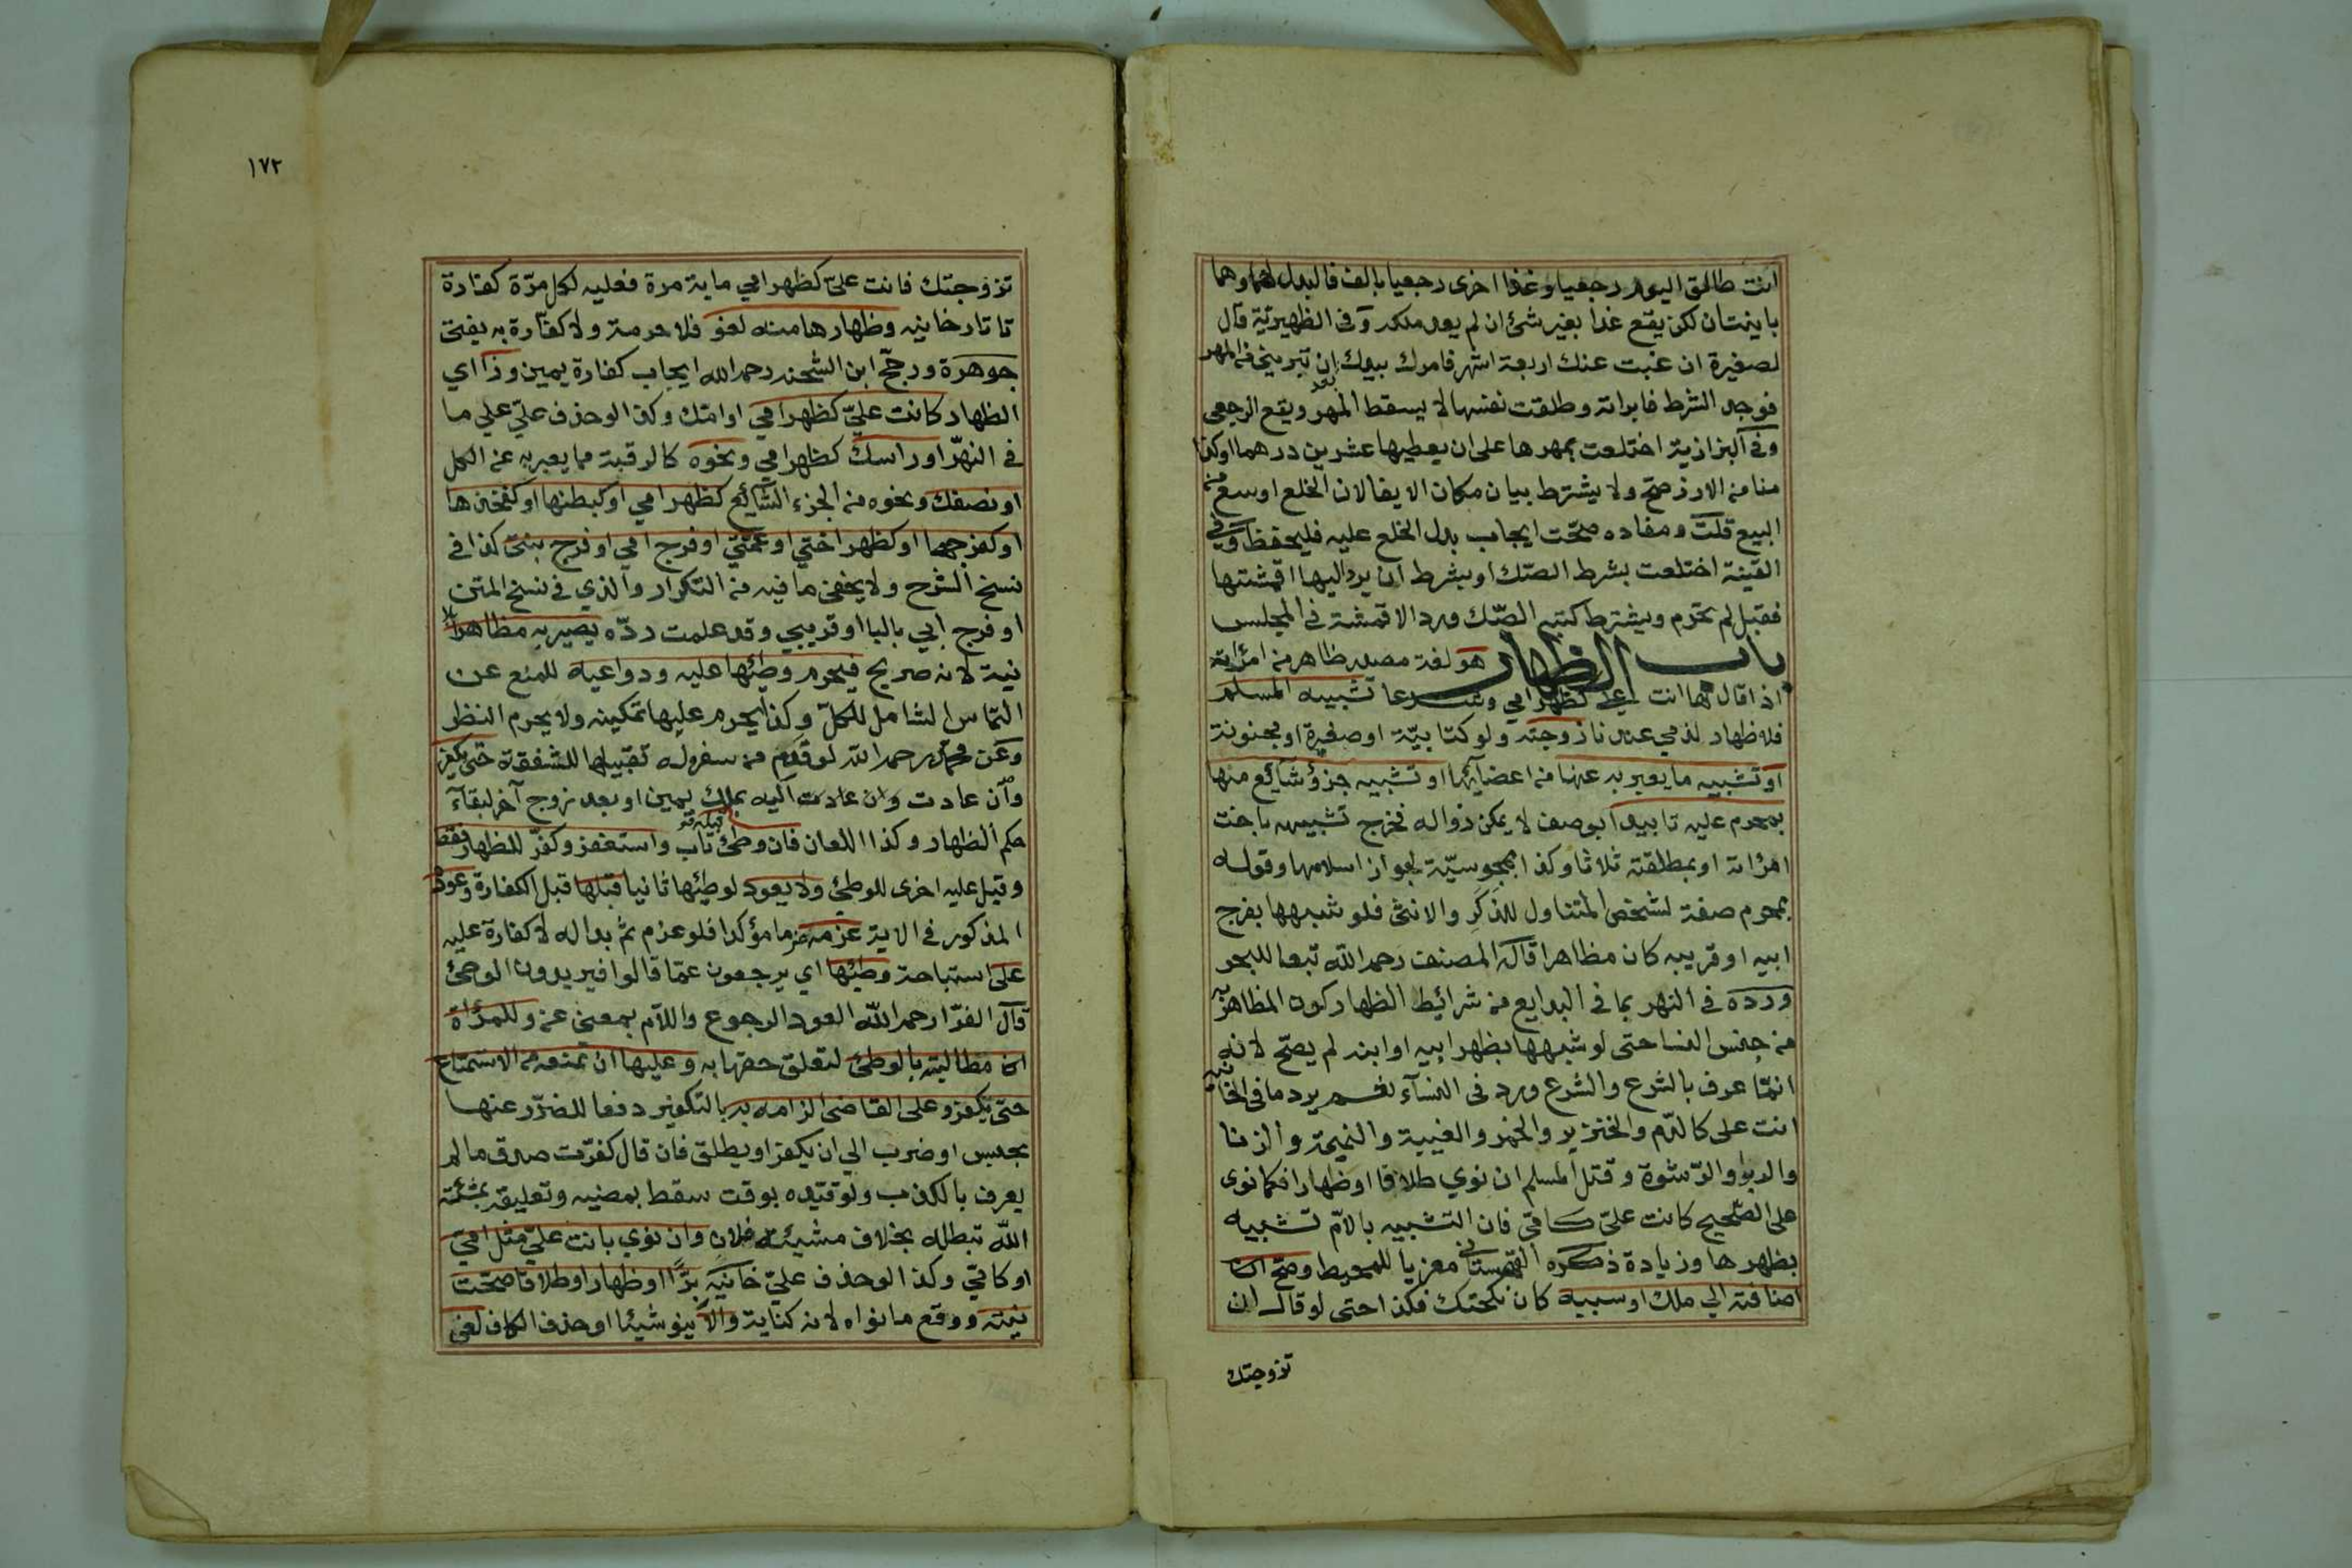 انت طالق اليوم رجعيا وغدا اخرى رجعيا بالف فالبدل لهما وهما
باينتان لكن يقع غدا بغير شئ ان لم يعد ملكه وفي الظهيرية قال
لصغيرة ان غبت عنك اربعة اشهر فامرك بيدك بعد ان تبريني من المهر
فوجد الشرط فابراته وطلقت نفسها لا يسقط المهر ويقع الرجعي
وفي البزازية اختلعت بمهرها على ان يعطيها عشرين درهما او كذا
منا من الارز صح ولا يشترط بيان مكان الايفا لان الخلع اوسع من
البيع قلت ومفاده صحت ايجاب بدل الخلع عليه فليحفظ وفي
القنية اختلعت بشرط الصك او بشرط ان يرد اليها اقمشتها
فقبل لم تحرم ويشترط كتبه الصك ورد الاقمشة في المجلس
باب الظهار هو لغة مصدر ظاهر من امراته
اذا قال لها انت علي كظهر امي وشرعا تشبيه المسلم
فلا ظهار لذمي عندنا زوجته ولو كتابية او صغيرة او مجنونة
او تشبيه ما يعبر به عنها من اعضائها او تشبيه جزؤ شائع منها
بمحرم عليه تابيدا بوصف لا يمكن زواله فخرج تشبيهه باخت
امراته او بمطلقته ثلاثا وكذا بمجوسية لجواز اسلامها وقوله
بمحرم صفة لشخص المتناول للذكر والانثى فلو شبهها بفرج
ابيه او قريبه كان مظاهرا قاله المصنف رحمه الله تبعا للبحر
ورده في النهر بما في البدايع من شرائط الظهار كون المظاهر به
من جنس النسا حتى لو شبهها بظهر ابيه او ابنه لم يصح لانه
انما عرف بالشرع والشرع ورد في النساء نعم يرد ما في الخانية
انت على كالدم والخنزير والخمر والغيبة والنميمة والزنا
والربوا والرشوة وقتل المسلم ان نوي طلاقا او ظهارا فكما نوى
على الصحيح كانت علي كامي فان التشبيه بالام تشبيه
بظهرها وزيادة ذكره القهستاني معزيا للمحيط وصح
اضافته الي ملك او سببه كان نكحتك فكذا حتى لو قال ان
تزوجتك
١٧٢
تزوجتك فانت علي كظهر امي ماية مرة فعليه لكل مرة كفارة
تاتارخانيه وظهارها منه لغو فلا حرمة ولا كفارة به يفتى
جوهرة ورجح ابن الشحنه رحمه الله ايجاب كفارة يمين وذا اي
الظهار كانت علي كظهر امي او امك وكذا لو حذف علي علي ما
في النهر او راسك كظهر امي ونحوه كالرقبة مما يعبر به عن الكل
او نصفك ونحوه من الجزء الشائع كظهر امي او كبطنها او كفخذها
او كفرجها او كظهر اختي او عمتي او فرج امي او فرج بنتي كذا في
نسخ الشرح ولا يخفى ما فيه من التكرار والذي في نسخ المتن
او فرج ابي بالبا او قريبي وقد علمت رده يصير به مظاهرا بلا
نية لانه صريح فيحرم وطئها عليه ودواعيه للمنع عن
التماس الشامل للكل وكذا يحرم عليها تمكينه ولا يحرم النظر
وعن محمد رحمه الله لو قدم من سفر له تقبيلها للشفقة حتى يكفر
وان عادت وان عادت اليه بملك يمين او بعد زوج آخر لبقاء
حكم الظهار وكذا اللعان فان وطئ قبله تاب واستغفر وكفر للظهار فقط
وقيل عليه اخرى للوطئ ولا يعود لوطئها ثانيا قبلها قبل الكفارة وعوده
المذكور في الاية عزمه عزما مؤكدا فلو عزم ثم بدا له لا كفارة عليه
على استباحة وطئها اي يرجعون عما قالوا فيريدون الوطئ
قال الفرا رحمه الله العود الرجوع واللام بمعنى عن وللمرأة
ان مطالبته بالوطئ لتعلق حقها به وعليها ان تمنعه من الاستمتاع
حتى يكفر وعلى القاضي الزامه به بالتكفير دفعا للضرر عنها
بحبس او ضرب الي ان يكفر او يطلق فان قال كفرت صدق ما لم
يعرف بالكذب ولو قيده بوقت سقط بمضيه وتعليقه بمشئة
الله تبطله بخلاف مشيئة فلان وان نوي بانت علي مثل امي
او كامي وكذا لو حذف علي خانيه برا او ظهارا او طلاقا صحت
نيته ووقع ما نواه لانه كناية والا ينو شيئا او حذف الكاف لغى